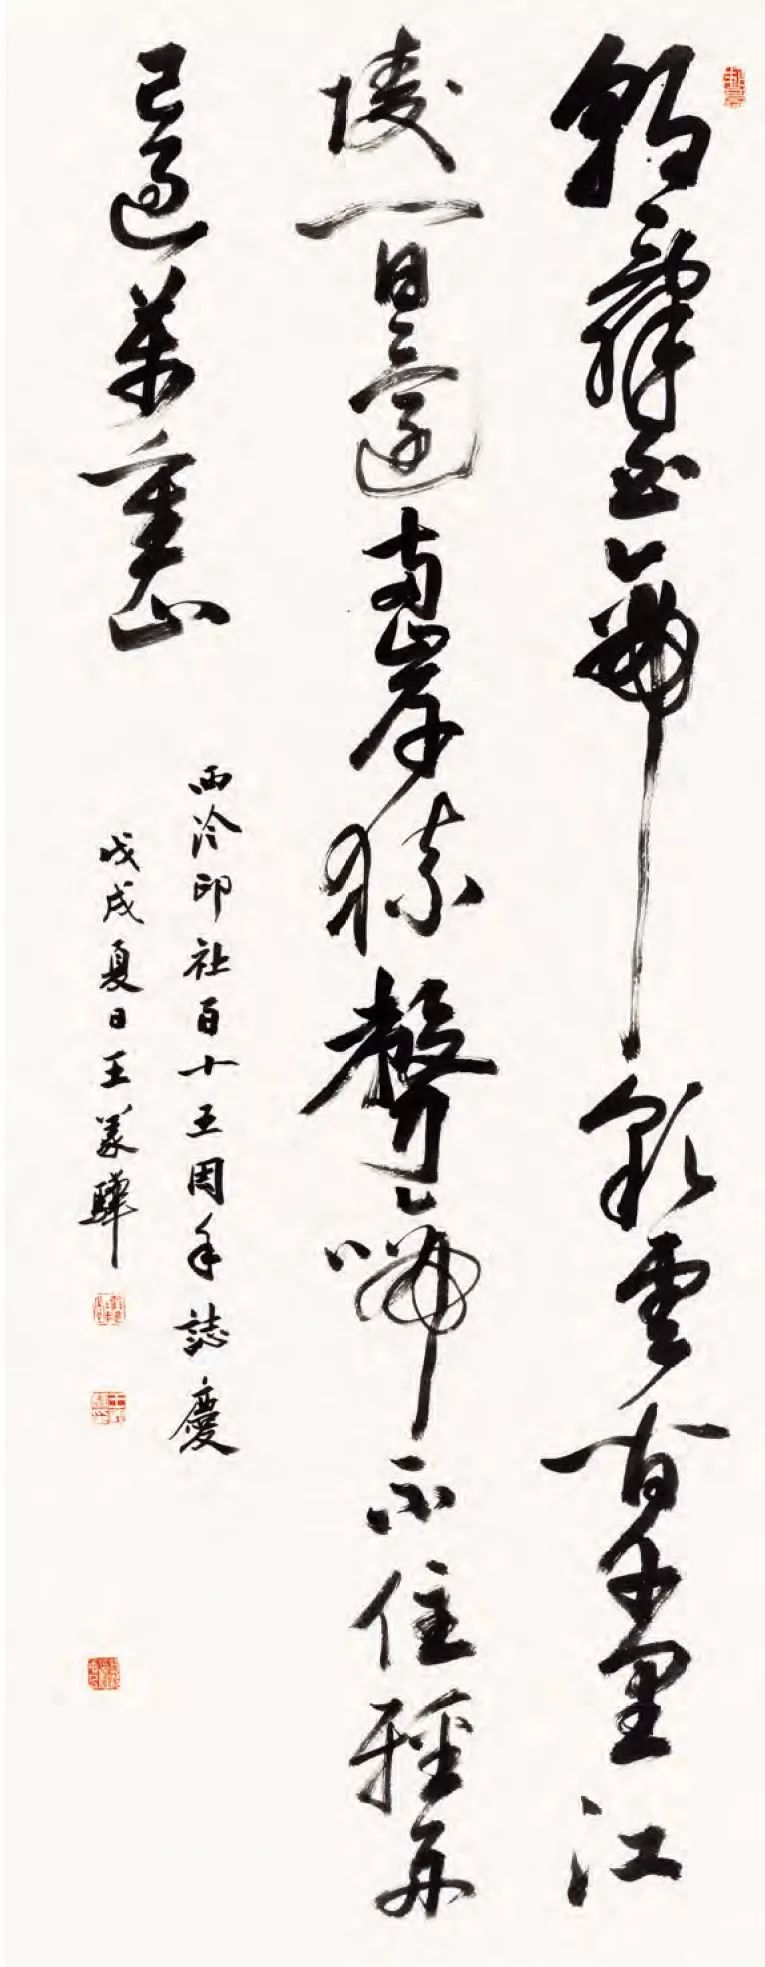 朝辭白帝彩雲間千里江
陵一日還兩岸猿聲啼不住輕舟
已過萬重山
西泠印社百十五周年誌慶
戊戌夏日王義驊